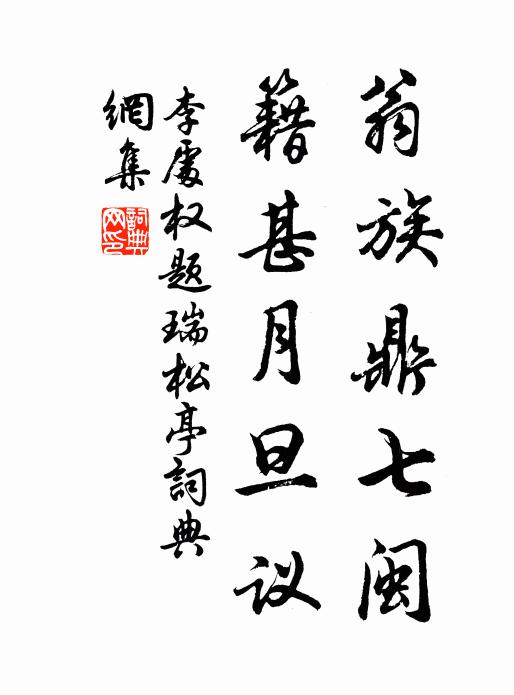 翁族鼎七闽
籍甚月旦议
李处权题瑞松亭詞典
網集
詞典
网印